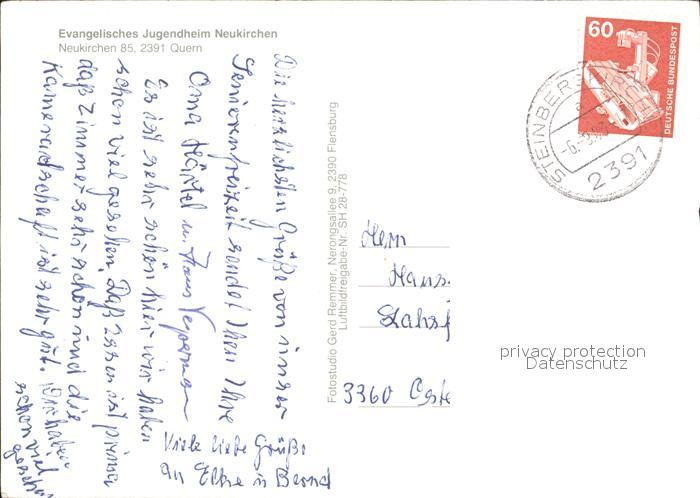 Evangelisches Jugendheim Neukirchen
Neukirchen 85, 2391 Quern
60
DEUTSCHE BUNDESPOST
2391
Die herzlichsten Grüße von unser
Seniorenfreizeit sendet Ihnen Ihre
Oma Härtel u. Frau
Es ist sehr schön hier wir haben
schon viel gesehen. Daß Essen ist prima
daß Zimmer sehr schön und die
Kameradschaft ist sehr gut. Wir haben
schon viel
gesehn
Viele liebe Grüße
an Elke u Bernd
Fotostudio Gerd Remmer, Nerongsallee 9, 2390 Flensburg
Luftbildfreigabe-Nr. SH 28-778
Herrn
Hans
3360 Oste
privacy protection
Datenschutz